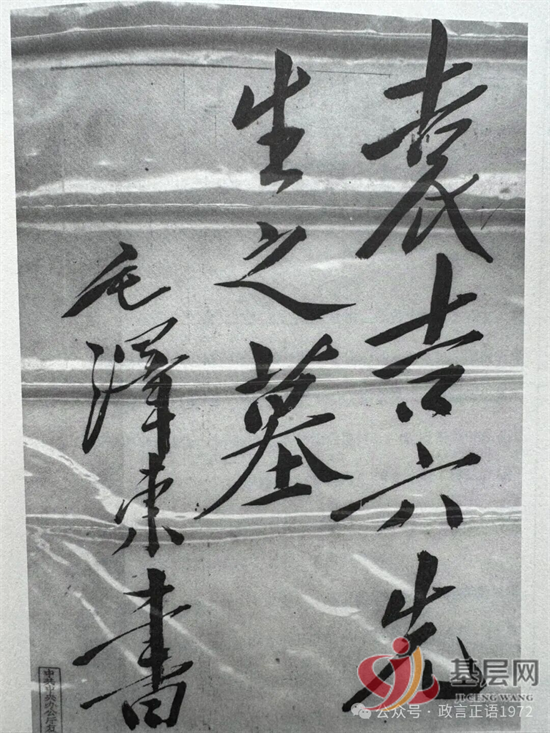 袁吉六先
生之墓
毛泽东书
基层网
JICENGWANG
公众号·政言正语1972